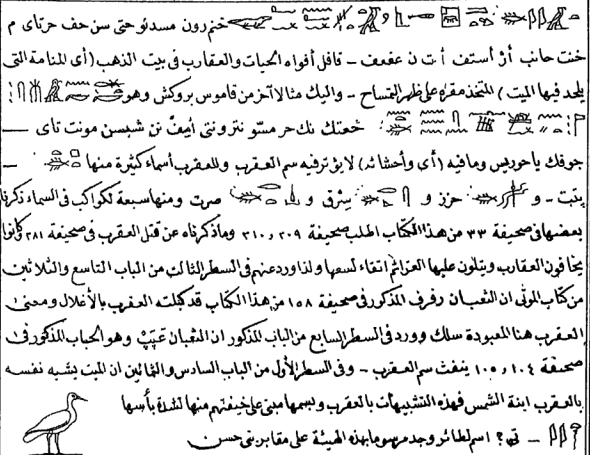 خنم رون مسدنو حتى سن حف حر تاى م
خنت حانب أر أستف أ ت ن عقعف – قافل أفواه الحيات والعقارب فى بيت الذهب (أى المنامة التى
يلحد فيها الميت) المتخذ مقره على ظهر التمساح – واليك مثالا آخر من قاموس بروكش وهو
نك حر مستو نترو نتى أيمف نن شبسن مونت تاى —
جوفك ياحوريس ومافيه (أى وأحشائه) لا يؤثر فيه سم العقرب وللعقرب أسماء كثيرة منها –
و حزز و سرق و صرت ومنها سبعة لكواكب فى السماء ذكرنا
بعضها فى صحيفة ٣٣ من هذا الكتاب اطلب صحيفة ٢٠٩ و ٢١٠ وماذكرناه عن قتل العقرب فى صحيفة ٢٨١ كانوا
يخافون العقارب ويتلون عليها العزائم اتقاء لسعها ولذا ورد عنهم فى السطر الثالث من الباب التاسع والثلاثين
من كتاب الموتى ان الثعبان رفرف المذكور فى صحيفة ١٥٨ من هذا الكتاب قد كبلته العقرب بالأغلال ومعنى
العقرب هنا المعبودة سلك وورد فى السطر السابع من الباب المذكور ان الثعبان عپپ وهو الحباب المذكور فى
صحيفة ١٠٤ و ١٠٥ ينفث سم العقرب – وفى السطر الأول من الباب السادس والثمانين ان الميت يشبه نفسه
بالعقرب ابنة الشمس فهذه التشبيهات بالعقرب وبسمها مبنى على خيفتهم منها لشدة بأسها
– تى؟ اسم لطائر وجد مرسوما بهذه الهيئة على مقابر بنى حسن